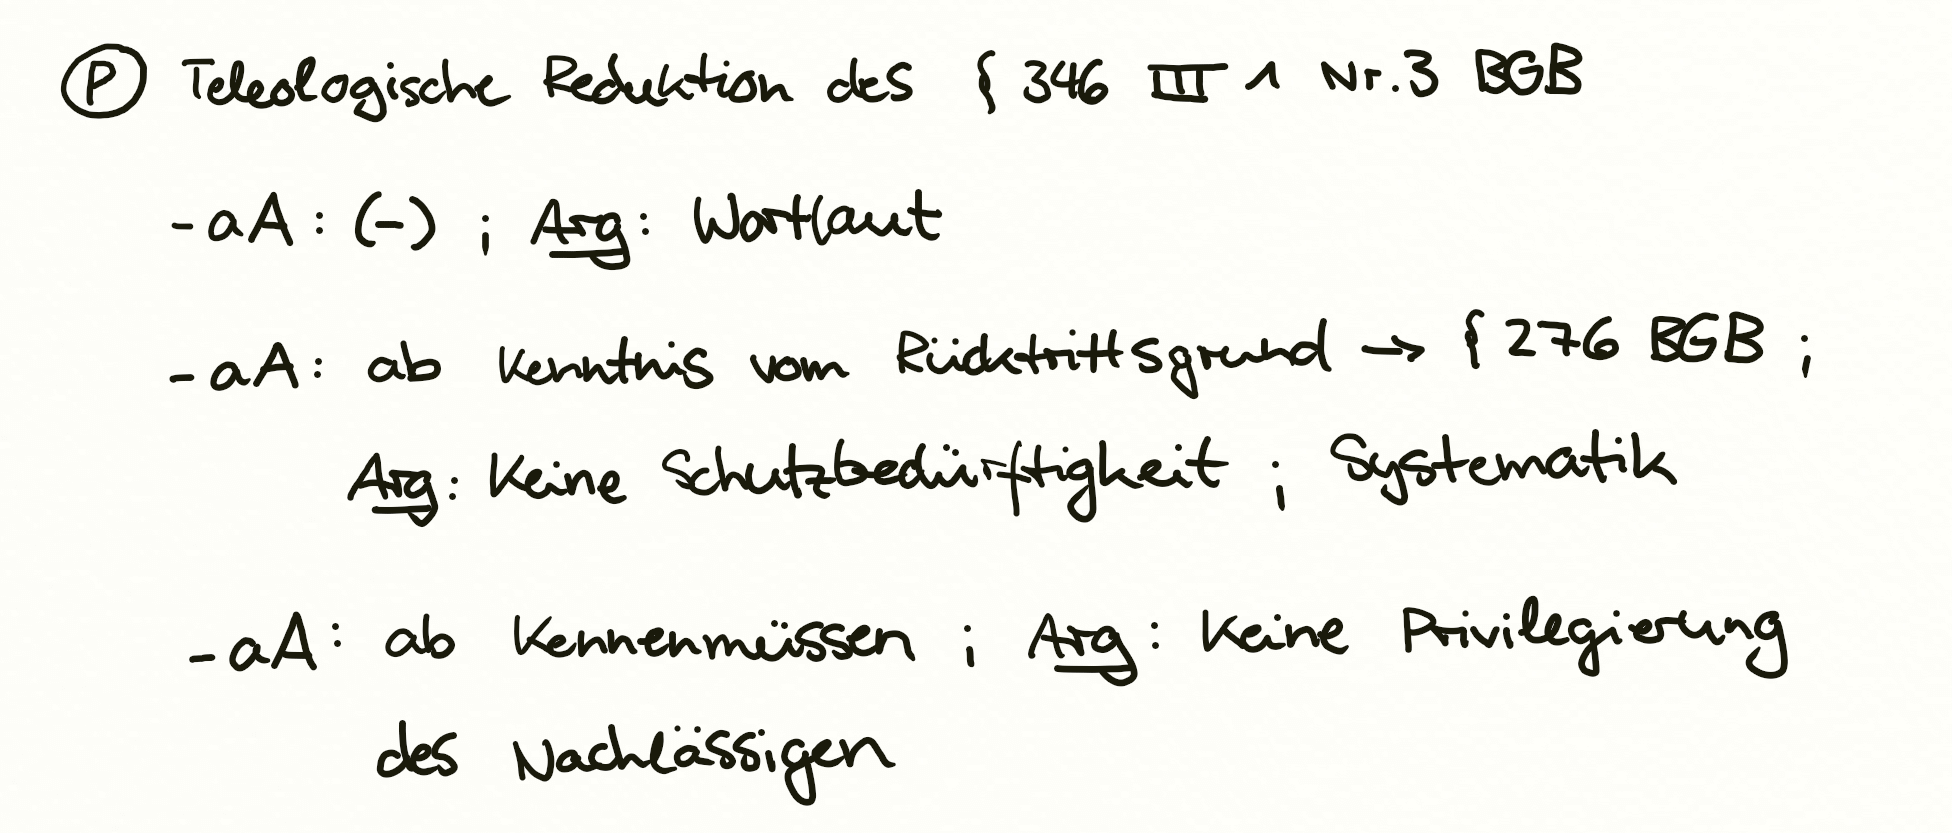 Ⓟ Teleologische Reduktion des § 346 III 1 Nr. 3 BGB
- aA: (-) ; Arg: Wortlaut
- aA: ab Kenntnis vom Rücktrittsgrund → § 276 BGB ;
Arg: Keine Schutzbedürftigkeit ; Systematik
- aA: ab Kennenmüssen ; Arg: Keine Privilegierung
des Nachlässigen